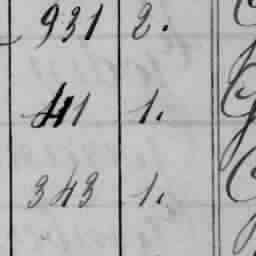 931 2.
411 1.
343 1.